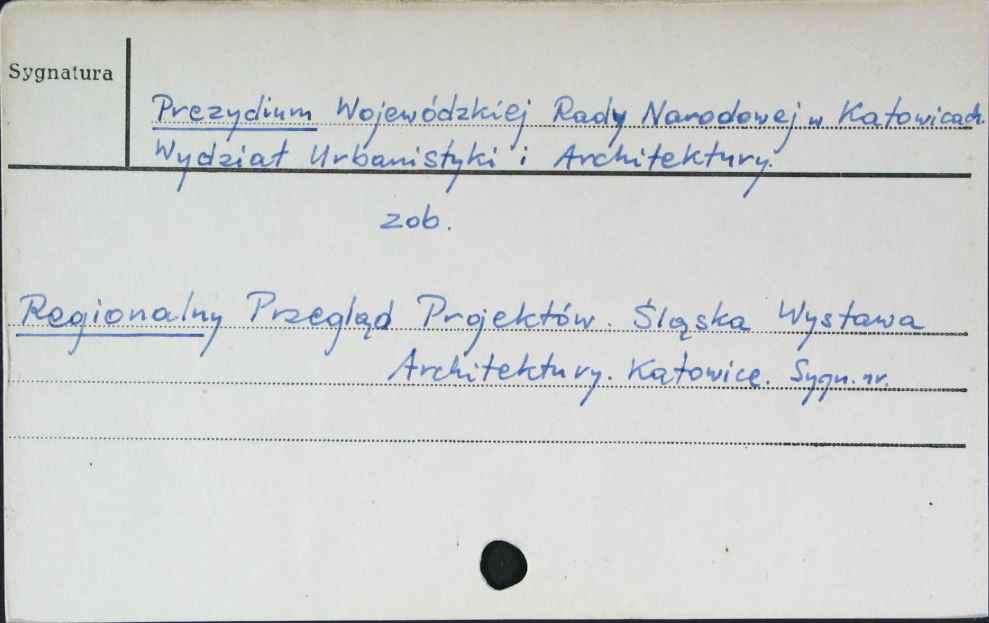 Sygnatura
Prezydium Wojewódzkiej Rady Narodowej w Katowicach.
Wydział Urbanistyki i Architektury.
zob.
Regionalny Przegląd Projektów. Śląska Wystawa
Architektury. Katowice. Sygn. nr.